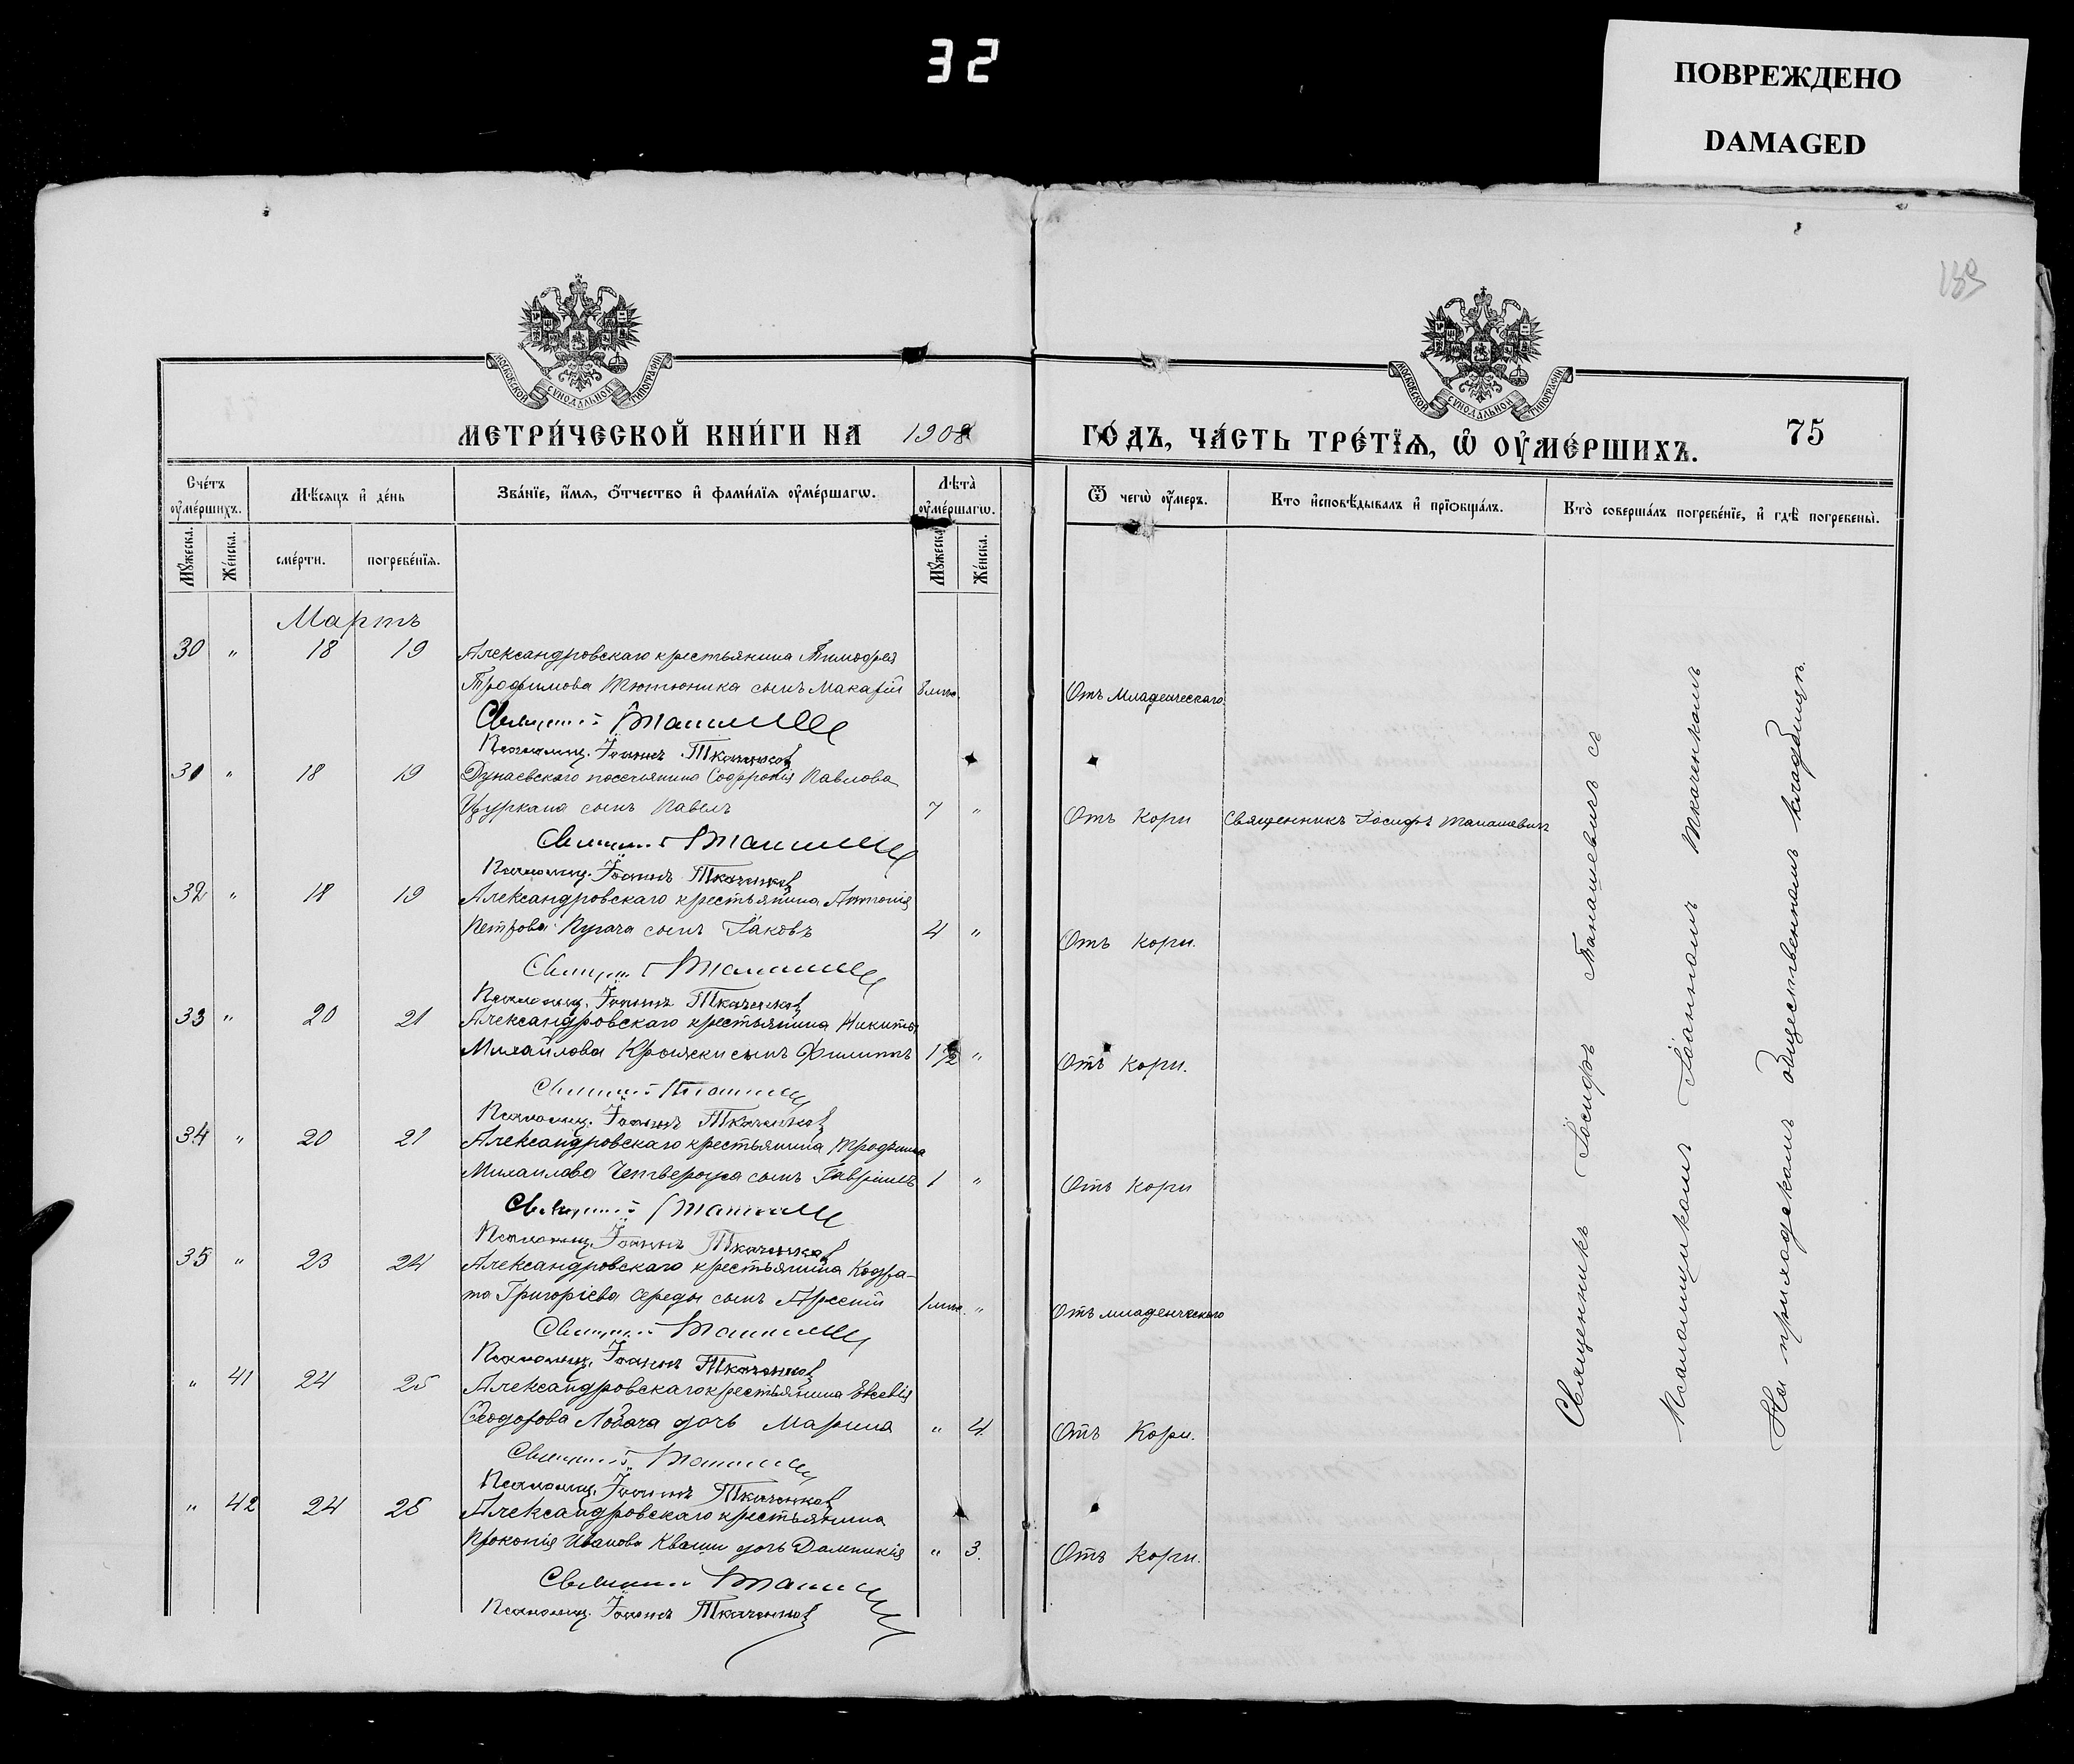 32
ПОВРЕЖДЕНО
DAMAGED
МОСКОВСКОЙ СѴНОДАЛЬНОЙ ТИПОГРАФІИ
МОСКОВСКОЙ СѴНОДАЛЬНОЙ ТИПОГРАФІИ
МЕТРИ́ЧЕСКОЙ КНИ́ГИ НА 1908
ГО́ДЪ, ЧА́СТЬ ТРЕ́ТЇѦ, Ѡ҆ ОУ҆МЕ́РШИХЪ.
75
Сче́тъ оу҆ме́ршихъ.
Мѣ́сѧцъ и҆ де́нь
Зва́нїе, и҆́мѧ, ѻ҆́тчество и҆ фами́лїѧ оу҆ме́ршагѡ.
Лѣ́та оу҆ме́ршагѡ.
Ѿ чегѡ̀ оу҆́меръ.
Кто и҆сповѣ́дывалъ и҆ прїѡбща́лъ.
Кто̀ соверша́лъ погребе́нїе, и҆ гдѣ̀ погребены̀.
Мꙋ́жеска.
Же́нска.
сме́рти.
погребе́нїѧ.
Мꙋ́жеска.
Же́нска.
Мартъ
30 " 18 19 Александровскаго крестьянина Тимофея
Трофимова Тютюника сынъ Макарій 8 Отъ Младенческаго
Псаломщ. Іоаннъ Ткаченковъ
31 " 18 19 Дунаевскаго поселянина Софронія Павлова
Цуркана сынъ Павелъ 7 " Отъ Кори Священникъ Іосифъ Танашевичъ
Псаломщ. Іоаннъ Ткаченковъ
32 " 18 19 Александровскаго крестьянина Антонія
Петрова Пугача сынъ Іаковъ 4 " Отъ Кори.
Псаломщ. Іоаннъ Ткаченковъ
33 " 20 21 Александровскаго крестьянина Никиты
Михайлова сынъ Филиппъ 1½ " Отъ Кори.
Псаломщ. Іоаннъ Ткаченковъ
34 " 20 21 Александровскаго крестьянина Трофима
Михаилова сынъ Гавріилъ 1 " Отъ Кори
Псаломщ. Іоаннъ Ткаченковъ
35 " 23 24 Александровскаго крестьянина Кодра-
та Григоріева Середы сынъ Арсеній 1 " Отъ младенческаго
Псаломщ. Іоаннъ Ткаченковъ
" 41 24 25 Александровскаго крестьянина Евсевія
Ѳеодорова Лобача дочь Марина " 4. Отъ Кори.
Псаломщ. Іоаннъ Ткаченковъ
" 42 24 25 Александровскаго крестьянина
Прокопія Иванова Кваши дочь Домникія " 3. Отъ Кори.
Псаломщ. Іоаннъ Ткаченковъ
Священникъ Іосифъ Танашевичъ съ
Псаломщикомъ Іоанномъ Ткаченкомъ
На приходскомъ общественномъ кладбищѣ.